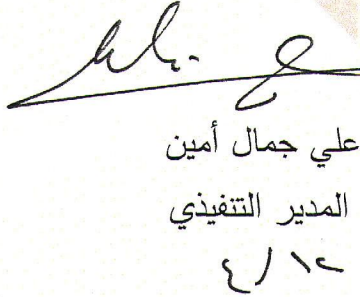 علي جمال أمين
المدير التنفيذي
٤/١٢